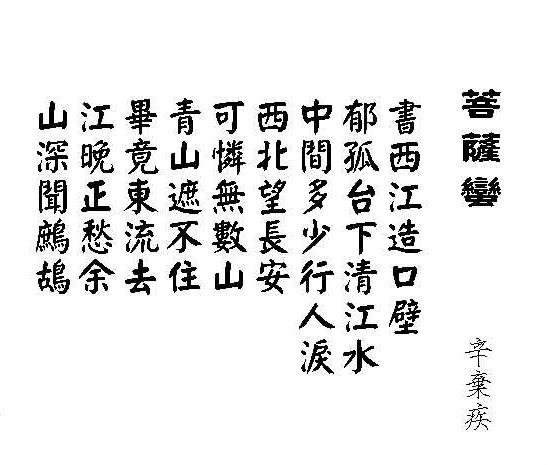 菩薩蠻
辛棄疾
書西江造口壁
郁孤台下清江水
中間多少行人淚
西北望長安
可憐無數山
青山遮不住
畢竟東流去
江晚正愁余
山深聞鷓鴣